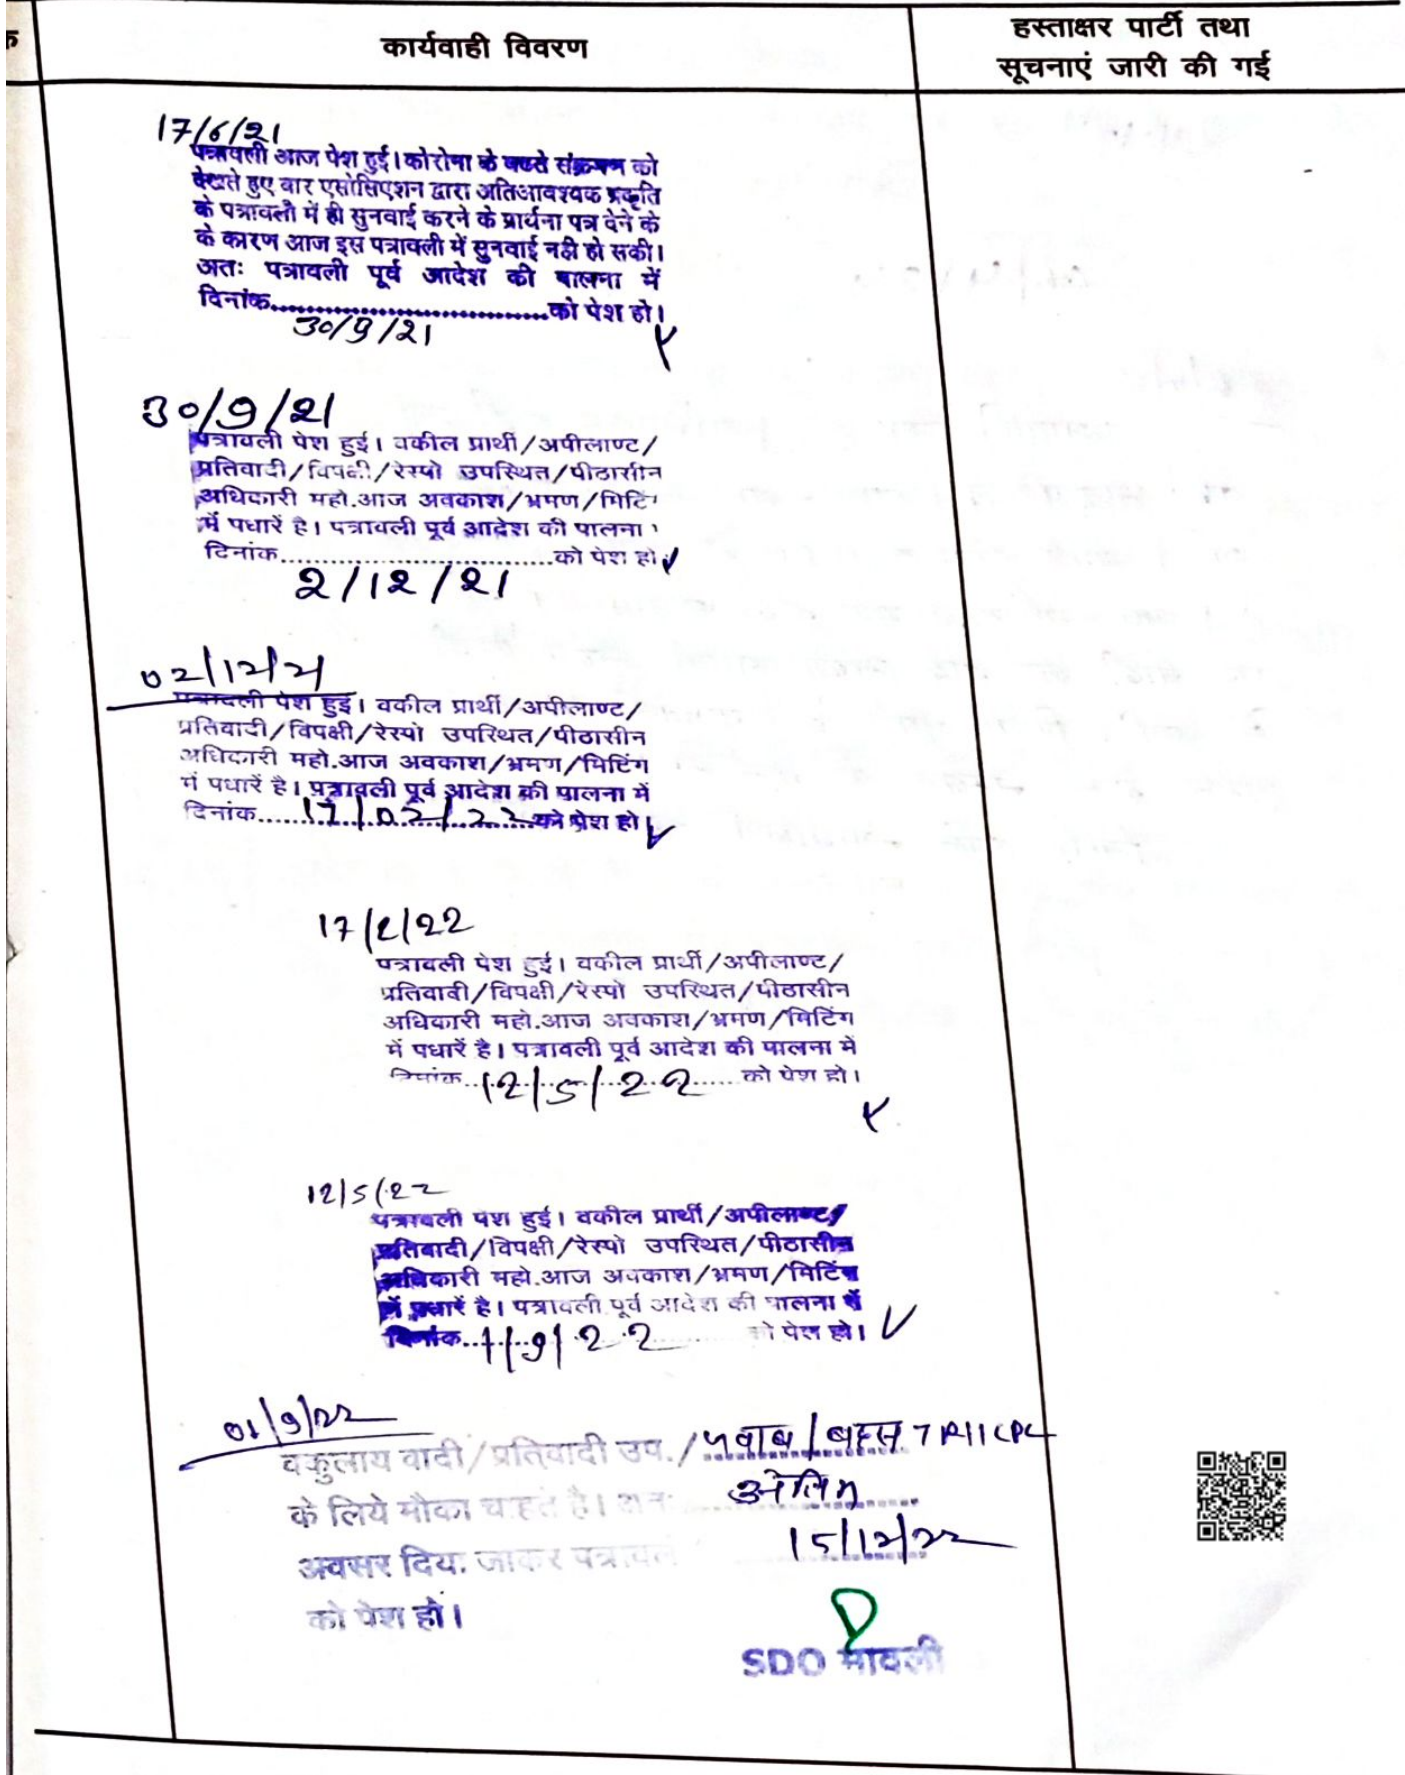 कार्यवाही विवरण
हस्ताक्षर पार्टी तथा
सूचनाएं जारी की गई
17/6/21
पत्रावली आज पेश हुई। कोरोना के बढते संक्रमण को
देखते हुए बार एसोसिएशन द्वारा अतिआवश्यक प्रकृति
के पत्रावली में ही सुनवाई करने के प्रार्थना पत्र देने के
के कारण आज इस पत्रावली में सुनवाई नही हो सकी।
अतः पत्रावली पूर्व आदेश की पालना में
दिनांक..............................को पेश हो।
30/9/21
30/9/21
पत्रावली पेश हुई। वकील प्रार्थी/अपीलाण्ट/
प्रतिवादी/विपक्षी/रेस्पो उपस्थित/पीठासीन
अधिकारी महो.आज अवकाश/भ्रमण/मिटिं
में पधारें है। पत्रावली पूर्व आदेश की पालना
दिनांक..............................को पेश हो।
2/12/21
02/12/21
पत्रावली पेश हुई। वकील प्रार्थी/अपीलाण्ट/
प्रतिवादी/विपक्षी/रेस्पो उपस्थित/पीठासीन
अधिकारी महो.आज अवकाश/भ्रमण/मिटिंग
में पधारें है। पत्रावली पूर्व आदेश की पालना में
दिनांक......17/02/22......को पेश हो।
17/2/22
पत्रावली पेश हुई। वकील प्रार्थी/अपीलाण्ट/
प्रतिवादी/विपक्षी/रेस्पो उपस्थित/पीठासीन
अधिकारी महो.आज अवकाश/भ्रमण/मिटिंग
में पधारें है। पत्रावली पूर्व आदेश की पालना में
दिनांक..12/5/22......को पेश हो।
12/5/22
पत्रावली पेश हुई। वकील प्रार्थी/अपीलाण्ट/
प्रतिवादी/विपक्षी/रेस्पो उपस्थित/पीठासीन
अधिकारी महो.आज अवकाश/भ्रमण/मिटिंग
में पधारें है। पत्रावली पूर्व आदेश की पालना में
दिनांक..1/9/22......को पेश हो।
01/9/22
वकुलाय वादी/प्रतिवादी उप./जवाब/बहस 7 R 11 CPC
के लिये मौका चाहते है। अतः अंतिम
अवसर दिया जाकर पत्रावली 15/12/22
को पेश हो।
SDO मावली